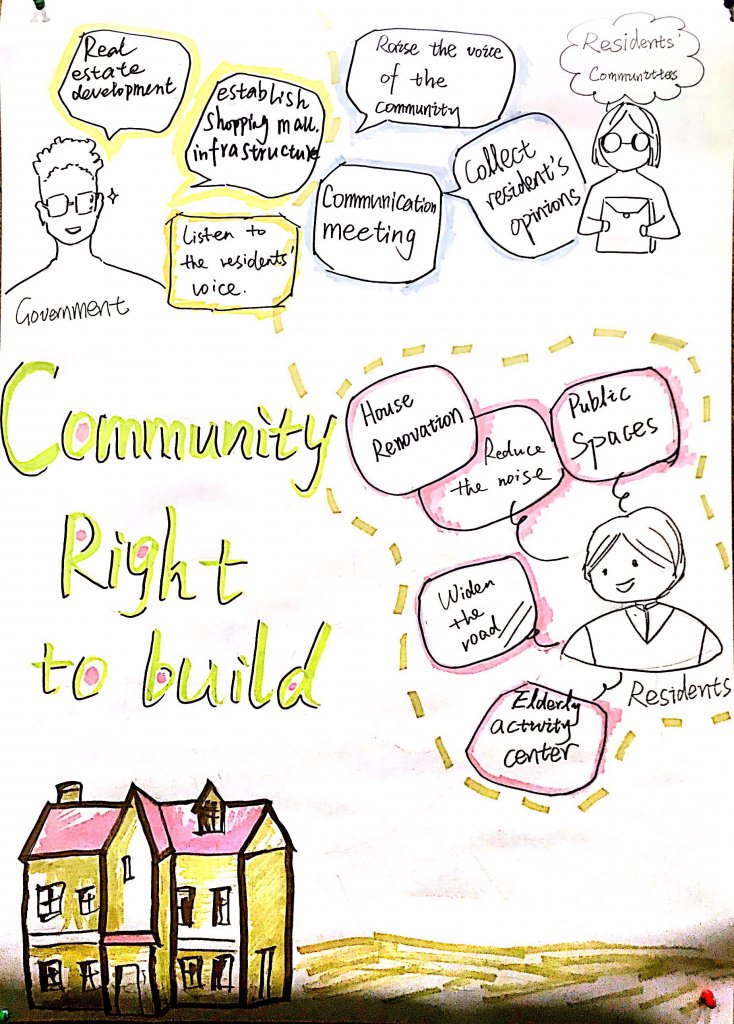 Real
estate
development
establish
Shopping mall.
infrastructure
Listen to
the residents'
voice.
Government
Raise the voice
of the
community
Communication
meeting
Collect
resident's
opinions
Residents'
Communities
Community
Right
to build
House
Renovation
Reduce
the noise
Public
Spaces
Widen
the
road
Elderly
activity
center
Residents